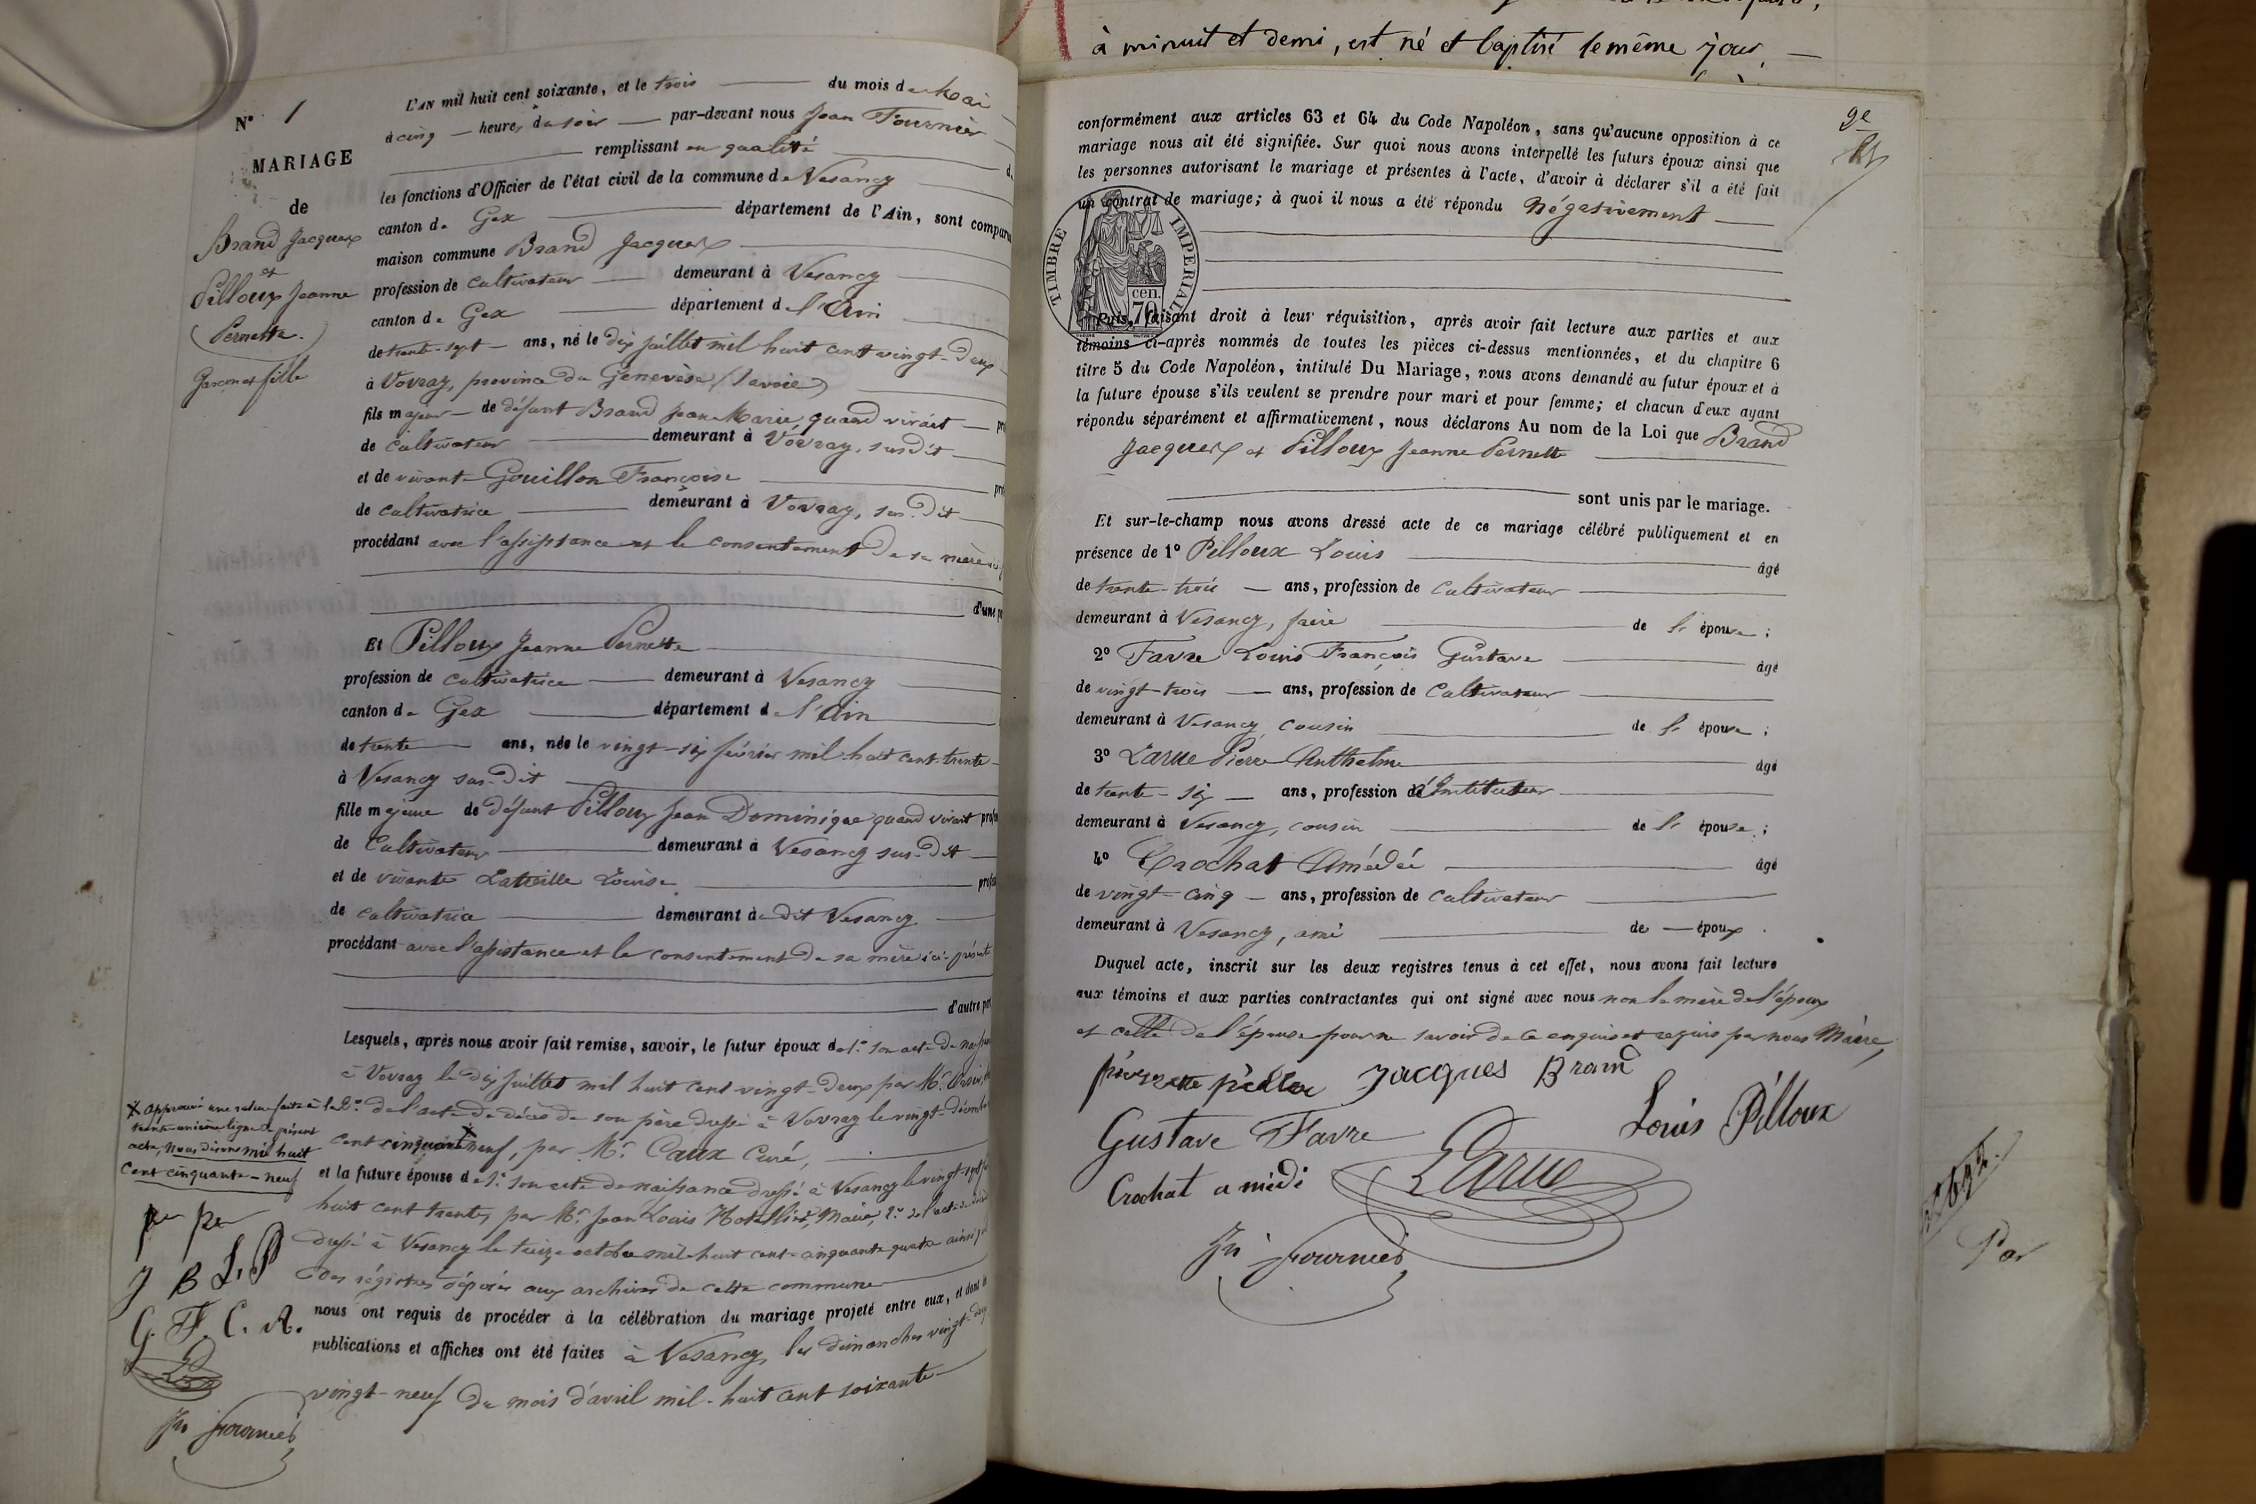 à minuit et demi, est né et baptisé le même jour,
N° 1
MARIAGE
de
Brand Jacques
et
Pilloux Jeanne
(Pernette.)
Garçon et fille
L'AN mil huit cent soixante, et le trois du mois de Mai
à cinq heures du soir par-devant nous Jean Fournier
remplissant en qualité d
les fonctions d'Officier de l'état civil de la commune de Vesancy
canton de Gex département de l'Ain, sont comparu
maison commune Brand Jacques
profession de cultivateur demeurant à Vesancy
canton de Gex département de l'Ain
de trente-sept ans, né le dix juillet mil huit cent vingt-deux
à Vovray, province du Genevèse (Savoie)
fils majeur de défunt Brand Jean Marie, quand vivait pro
de cultivateur demeurant à Vovray, susdit
et de vivante Gouillon Françoise pro
de cultivatrice demeurant à Vovray, sus-dit
procédant avec l'assistance et le consentement de sa mère ici
d'une pa
Et Pilloux Jeanne Pernette
profession de cultivatrice demeurant à Vesancy
canton de Gex département de l'Ain
de trente ans, née le vingt-six février mil-huit cent-trente
à Vesancy sus-dit
fille majeure de défunt Pilloux Jean Dominique quand vivait profes
de Cultivateur demeurant à Vesancy sus-dit
et de vivante Latreille Louise profes
de cultivatrice demeurant à dit Vesancy
procédant avec l'assistance et le consentement de sa mère ici-présente
d'autre par
Lesquels, après nous avoir fait remise, savoir, le futur époux de 1° son acte de naissance
à Vovray le dix juillet mil huit cent vingt-deux par Mr
2° de l'acte de décès de son père dressé à Vovray le vingt-décembre
cent cinquante neuf, par Mr Caux Curé,
et la future épouse de 1° son acte de naissance dressé à Vesancy le vingt-sept
huit cent trente, par Mr Jean Louis Hotellier, Maire, 2° de l'acte de décès
dressé à Vesancy le treize octobre mil-huit cent-cinquante quatre ainsi
des régistres déposés aux archives de cette commune
nous ont requis de procéder à la célébration du mariage projeté entre eux, et dont
publications et affiches ont été faites à Vesancy, les dimanches vingt-deux
vingt-neuf du mois d'avril mil-huit cent soixante
X approuvé une rature faite à la
trente-unième ligne du présent
acte, nous disons mil huit
cent cinquante-neuf
J B L. P
G. F. C. A.
Jn Fournier
9e
conformément aux articles 63 et 64 du Code Napoléon, sans qu'aucune opposition à ce
mariage nous ait été signifiée. Sur quoi nous avons interpellé les futurs époux ainsi que
les personnes autorisant le mariage et présentes à l'acte, d'avoir à déclarer s'il a été fait
un contrat de mariage; à quoi il nous a été répondu Négativement
TIMBRE IMPÉRIAL
70 cen.
Puis, faisant droit à leur réquisition, après avoir fait lecture aux parties et aux
témoins ci-après nommés de toutes les pièces ci-dessus mentionnées, et du chapitre 6
titre 5 du Code Napoléon, intitulé Du Mariage, nous avons demandé au futur époux et à
la future épouse s'ils veulent se prendre pour mari et pour femme; et chacun d'eux ayant
répondu séparément et affirmativement, nous déclarons Au nom de la Loi que Brand
Jacques et Pilloux Jeanne Pernette
sont unis par le mariage.
Et sur-le-champ nous avons dressé acte de ce mariage célébré publiquement et en
présence de 1° Pilloux Louis âgé
de trente-trois ans, profession de cultivateur
demeurant à Vesancy, frère de l' épouse;
2° Favre Louis François Gustave âgé
de vingt-trois ans, profession de cultivateur
demeurant à Vesancy cousin de l' épouse;
3° Larue Pierre Anthelme âgé
de trente-six ans, profession d'Instituteur
demeurant à Vesancy, cousin de l' épouse;
4° Crochat Amédée âgé
de vingt-cinq ans, profession de cultivateur
demeurant à Vesancy, ami de époux.
Duquel acte, inscrit sur les deux registres tenus à cet effet, nous avons fait lecture
aux témoins et aux parties contractantes qui ont signé avec nous non la mère de l'époux
et celle de l'épouse pour ne savoir de ce enquises et requis par nous Maire,
Jacques Brand
Louis Pilloux
Gustave Favre
Larue
Crochat amédi
Jn Fournier
Par